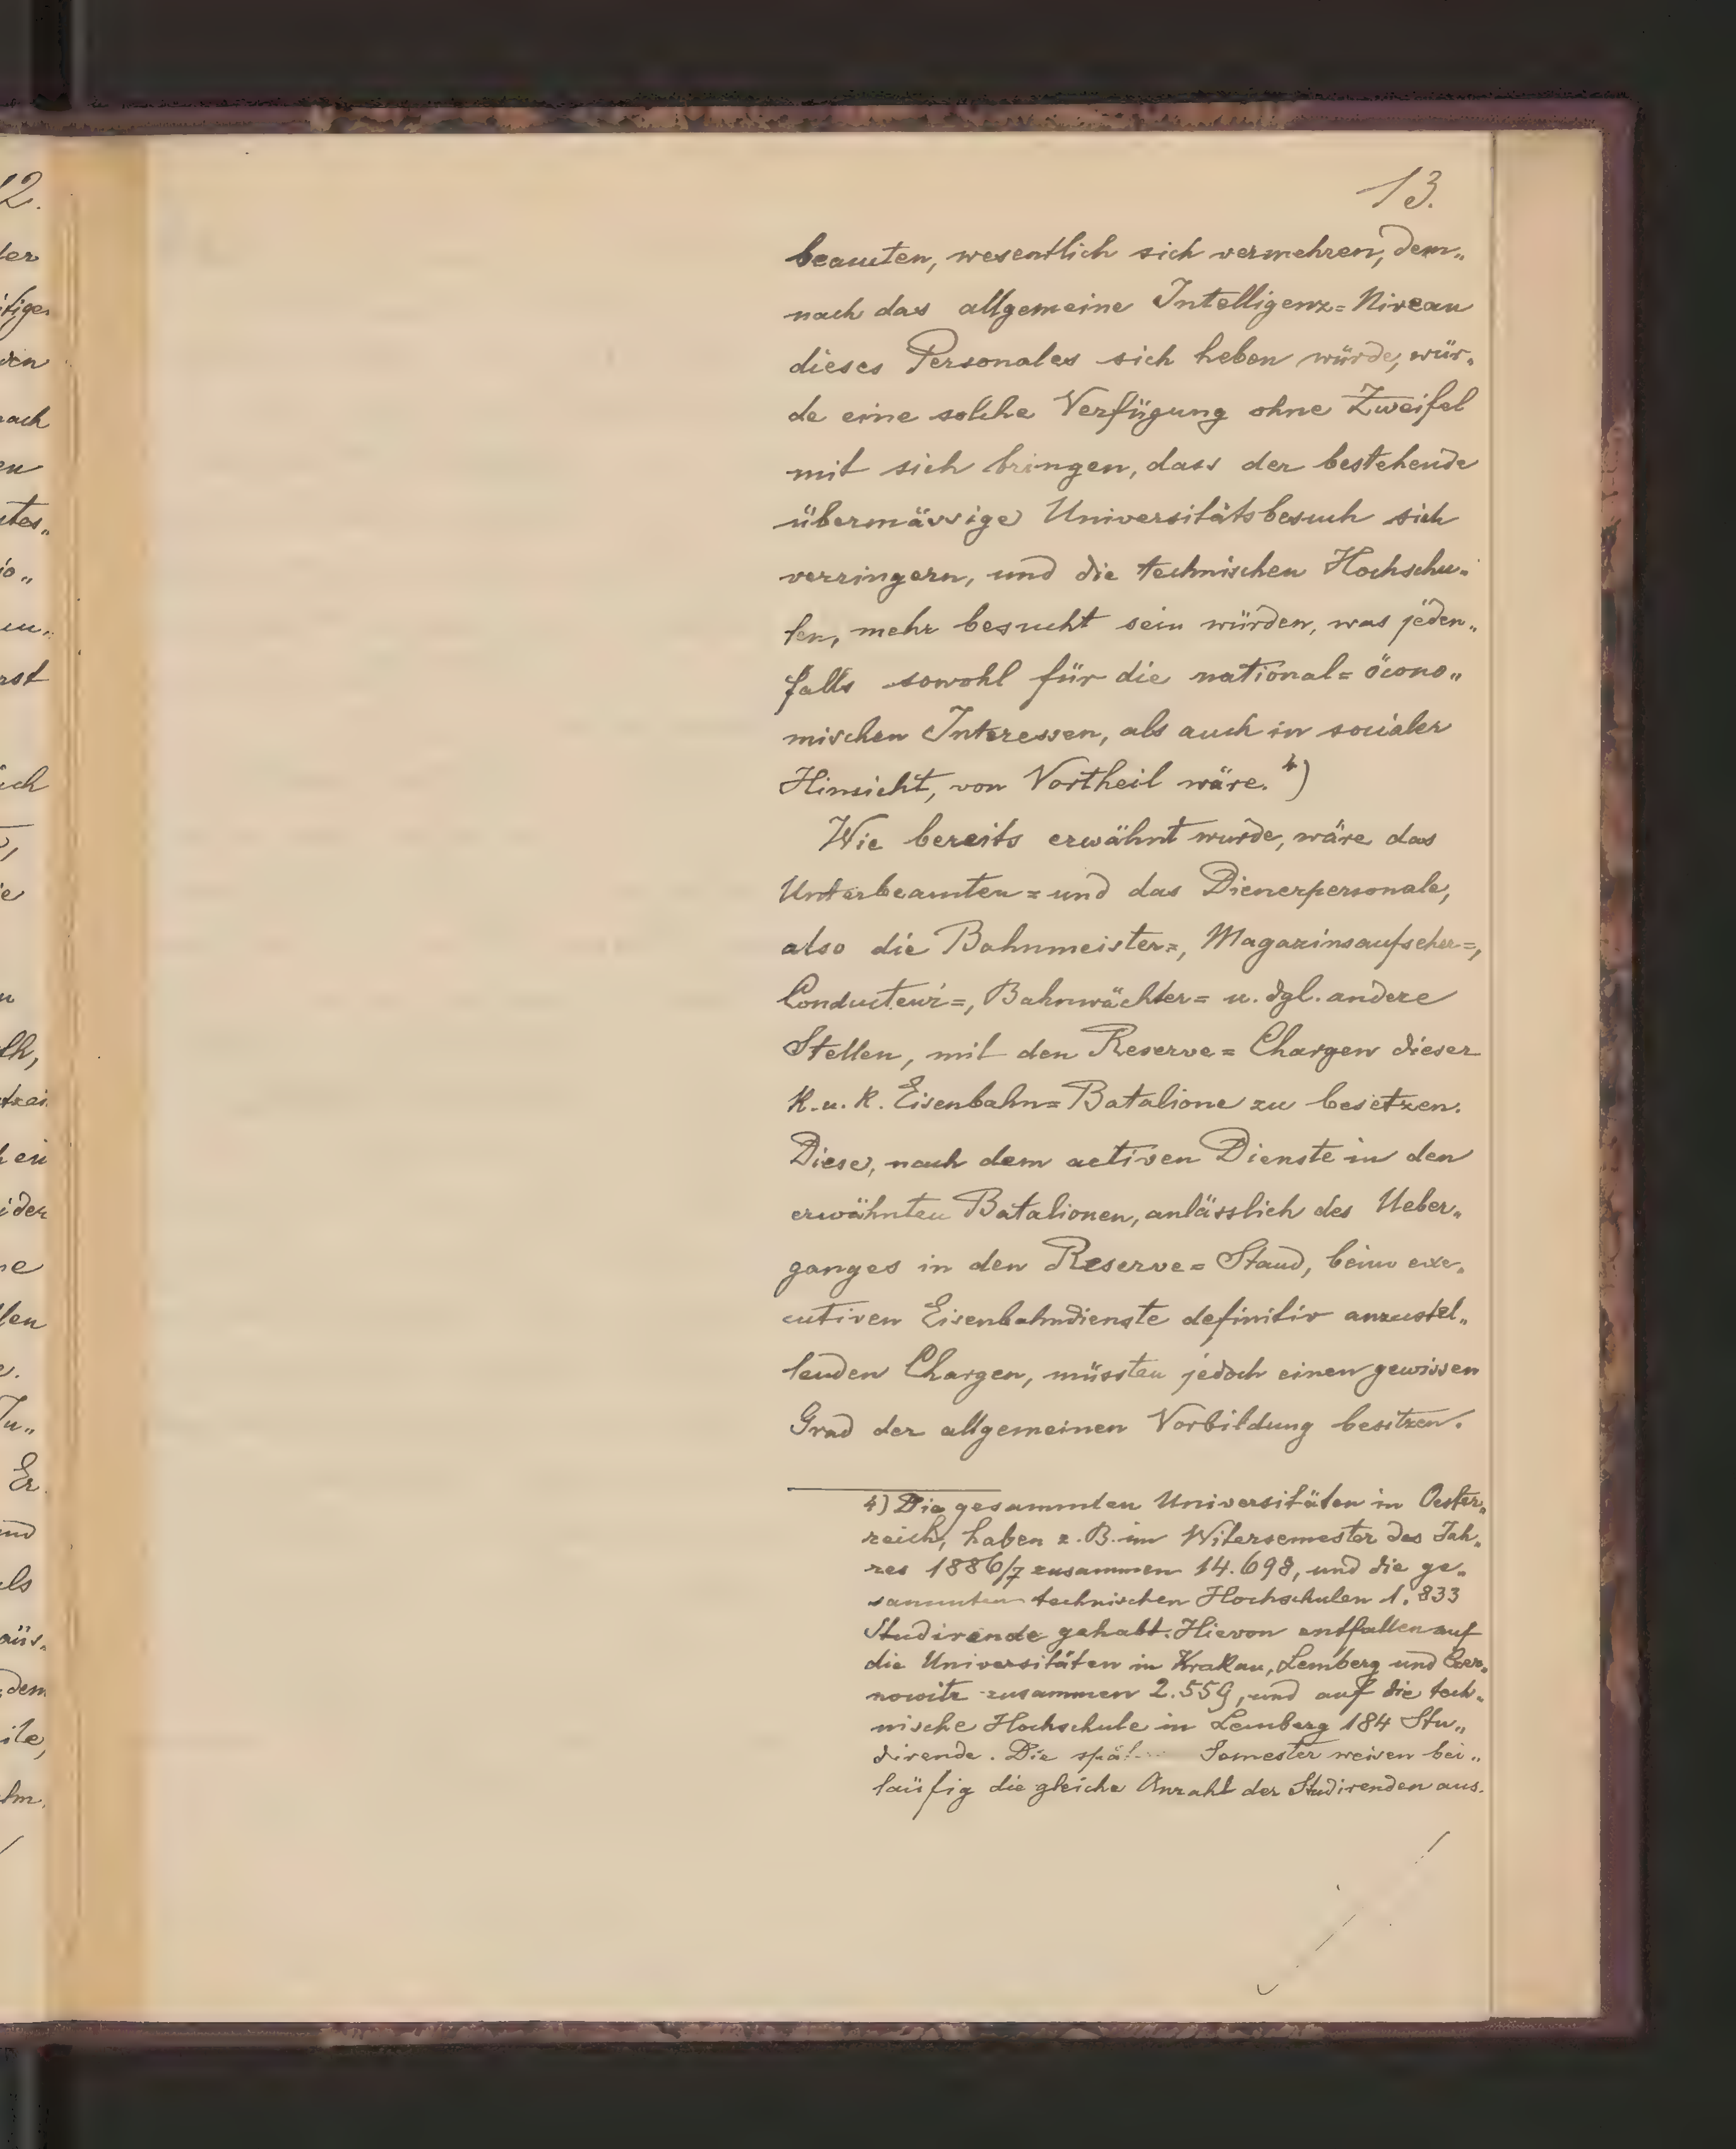 13.
beamten, wesentlich sich vermehren, dem„
nach das allgemeine Intelligenz=Niveau
dieses Personales sich heben würde, wür„
de eine solche Verfügung ohne Zweifel
mit sich bringen, dass der bestehende
übermässige Universitätsbesuch sich
verringern, und die technischen Hochschu„
len, mehr besucht sein würden, was jeden„
falls sowohl für die national=öcono„
mischen Interessen, als auch in socialer
Hinsicht, von Vortheil wäre. 4)
Wie bereits erwähnt wurde, wäre das
Unterbeamten=und das Dienerpersonale,
also die Bahnmeister=, Magazinsaufseher=,
Conducteur=, Bahnwächter= u. dgl. andere
Stellen, mit den Reserve=Chargen dieser
K.u.K. Eisenbahn=Batalione zu besetzen.
Diese, nach dem activen Dienste in den
erwähnten Batalionen, anlässlich des Ueber„
ganges in den Reserve=Stand, beim exe„
cutiven Eisenbahndienste definitiv anzustel„
lenden Chargen, müssten jedoch einen gewissen
Grad der allgemeinen Vorbildung besitzen.
4) Die gesammten Universitäten in Oester„
reich, haben z.B. im Witersemester des Jah„
res 1886/7 zusammen 14.698, und die ge„
sammten technischen Hochschulen 1.833
Studirende gehabt. Hievon entfallen auf
die Universitäten in Krakau, Lemberg und Czer„
nowitz zusammen 2.559, und auf die tech„
nische Hochschule in Lemberg 184 Stu„
dirende. Die Semester weisen bei„
läufig die gleiche Anzahl der Studirenden aus.